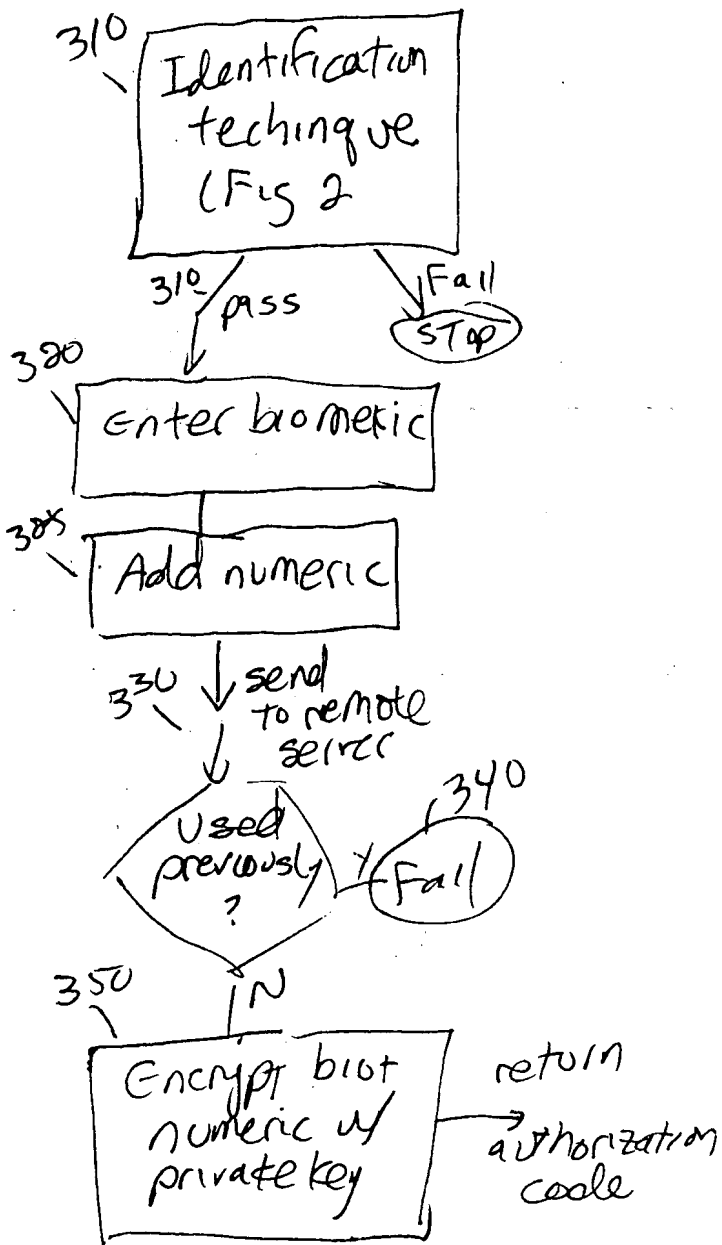 310
Identification
techinque
(Fig 2
310
pass
Fail
STOP
320
Enter biomeric
325
Add numeric
330
send
to remote
server
Used
previously
?
Y
340
Fail
N
350
Encrypt bio+
numeric w/
private key
return
authorization
code